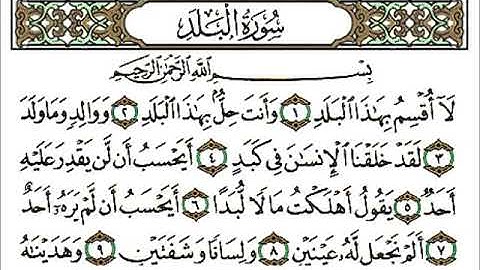 سُورَةُ الْبَلَدِ
بِسْمِ اللَّهِ الرَّحْمَٰنِ الرَّحِيمِ
لَآ أُقْسِمُ بِهَٰذَا ٱلْبَلَدِ ١ وَأَنتَ حِلٌّۢ بِهَٰذَا ٱلْبَلَدِ ٢ وَوَالِدٍ وَمَا وَلَدَ
٣ لَقَدْ خَلَقْنَا ٱلْإِنسَٰنَ فِى كَبَدٍ ٤ أَيَحْسَبُ أَن لَّن يَقْدِرَ عَلَيْهِ
أَحَدٌ ٥ يَقُولُ أَهْلَكْتُ مَالًا لُّبَدًا ٦ أَيَحْسَبُ أَن لَّمْ يَرَهُۥٓ أَحَدٌ
٧ أَلَمْ نَجْعَل لَّهُۥ عَيْنَيْنِ ٨ وَلِسَانًا وَشَفَتَيْنِ ٩ وَهَدَيْنَٰهُ